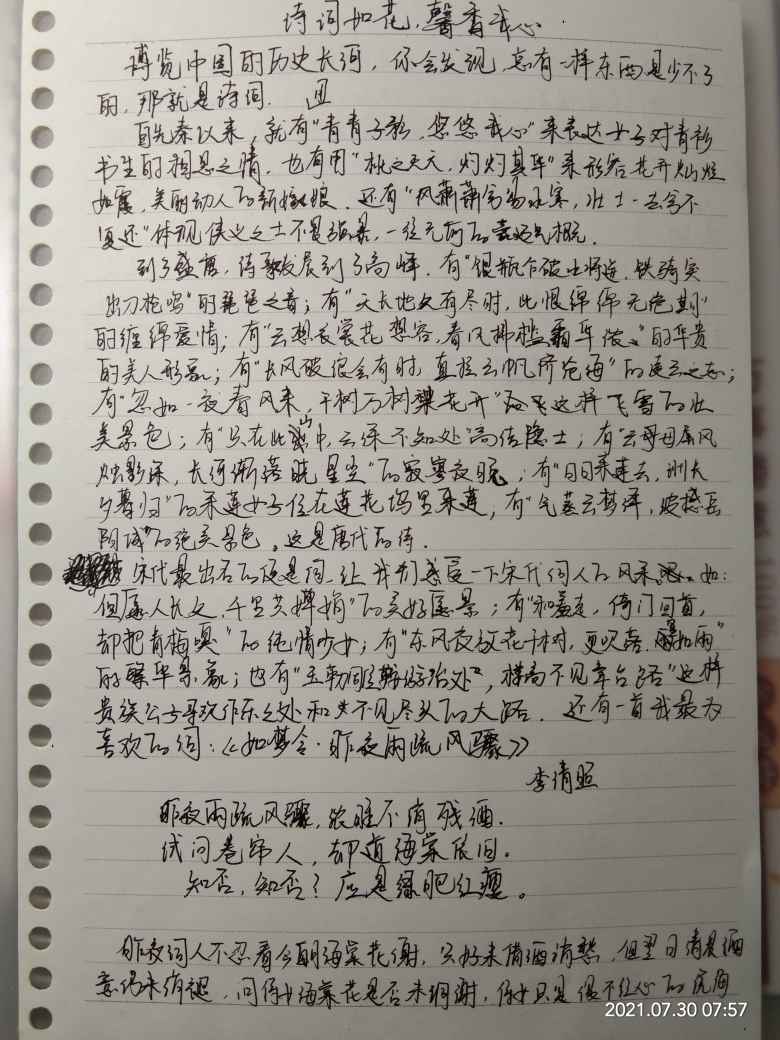 诗词如花,馨香我心.
博览中国的历史长河,你会发现,总有一样东西是少不了
的,那就是诗词.
自先秦以来,就有"青青子衿,悠悠我心"来表达女子对青衫
书生的相思之情,也有用"桃之夭夭,灼灼其华"来形容花开灿烂
如霞,美丽动人的新嫁娘.还有"风萧萧兮易水寒,壮士一去兮不
复还"体现侠义之士不畏强暴,一往无前的豪迈气概.
到了盛唐,诗歌发展到了高峰.有"银瓶乍破水浆迸,铁骑突
出刀枪鸣"的琵琶之音;有"天长地久有尽时,此恨绵绵无绝期"
的缠绵爱情;有"云想衣裳花想容,春风拂槛露华浓"的华贵
的美人形象;有"长风破浪会有时,直挂云帆济沧海"的凌云之志;
有"忽如一夜春风来,千树万树梨花开"这样飞雪的壮
美景色;有"只在此山中,云深不知处"高洁隐士;有"云母屏风
烛影深,长河渐落晓星坠"的寂寥夜晚;有"日日采莲去,洲长
多暮归"的采莲女子住在莲花坞里采莲;有"气蒸云梦泽,波撼岳
阳城"的绝美景色。这是唐代的诗.
宋代最出名的便是词.让我们感受一下宋代词人的风采.如:
但愿人长久,千里共婵娟"的美好愿景;有"和羞走,倚门回首,
却把青梅嗅"的纯情少女;有"东风夜放花千树,更吹落,星如雨"
的繁华景象;也有"玉勒雕鞍游冶处",楼高不见章台路"这样
贵族公子寻欢作乐之处和望不见尽头的大路.还有一首我最为
喜欢的词:《如梦令·昨夜雨疏风骤》
李清照
昨夜雨疏风骤,浓睡不消残酒.
试问卷帘人,却道海棠依旧。
知否,知否?应是绿肥红瘦。
昨夜词人不忍看今朝海棠花谢,只好来借酒消愁,但翌日清晨酒
意仍未消褪,问侍女海棠花是否未凋谢,侍女只是很不经心的
2021.07.30 07:57